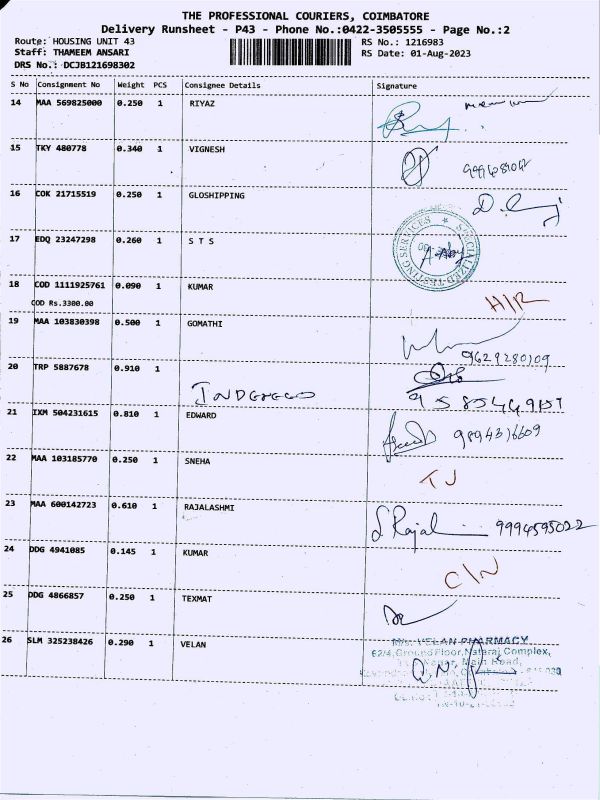 THE PROFESSIONAL COURIERS, COIMBATORE
Delivery Runsheet - P43 - Phone No.:0422-3505555 - Page No.:2
Route: HOUSING UNIT 43
RS No.: 1216983
Staff: THAMEEM ANSARI
RS Date: 01-Aug-2023
DRS No.: DCJB121698302
S No Consignment No Weight PCS Consignee Details Signature
14 MAA 569825000 0.250 1 RIYAZ
15 TKY 480778 0.340 1 VIGNESH
16 COK 21715519 0.250 1 GLOSHIPPING
17 EDQ 23247298 0.260 1 S T S
SPECIALIZED TESTING SERVICES
18 COD 1111925761 0.090 1 KUMAR
COD Rs.3300.00
H/R
19 MAA 103830398 0.500 1 GOMATHI
9629280109
20 TRP 5887678 0.910 1
21 IXM 504231615 0.810 1 EDWARD
9894316609
22 MAA 103185770 0.250 1 SNEHA
TJ
23 MAA 600142723 0.610 1 RAJALASHMI
S Rajal 9994595022
24 DDG 4941085 0.145 1 KUMAR
C/N
25 DDG 4866857 0.250 1 TEXMAT
26 SLM 325238426 0.290 1 VELAN
M/s. VELAN PHARMACY
62/4, Ground Floor, Nataraj Complex,
Nagar, Main Road,